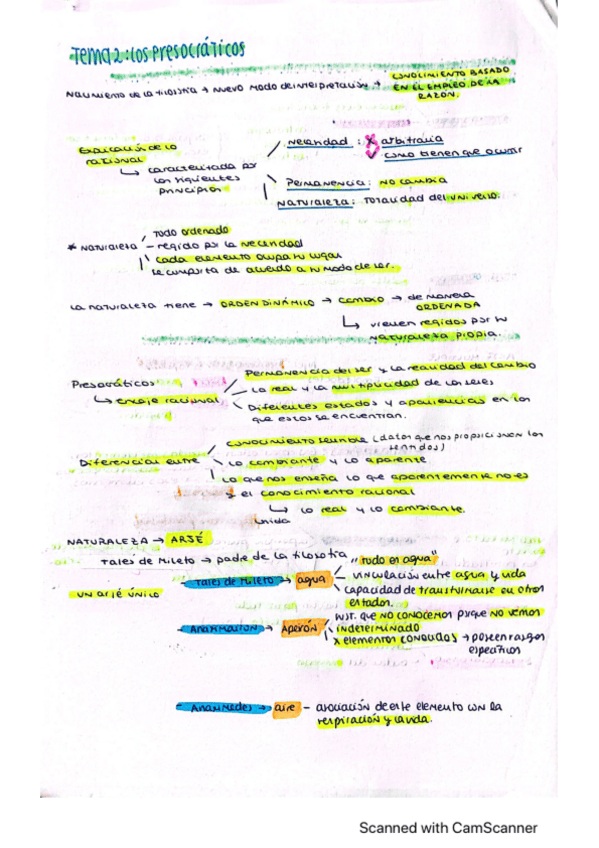 Tema 2: Los PRESOCRÁTICOS
Nacimiento de la filosofía → nuevo modo de interpretación → CONOCIMIENTO BASADO
EN EL EMPLEO DE LA
RAZÓN.
Explicación de lo
racional
↳ caracterizada por
los siguientes
principios
Necesidad: x arbitraria
✓ como tienen que ocurrir
Permanencia: NO cambia
NATURALEZA: Totalidad del universo.
* NATURALEZA
Todo ordenado
– regido por la necesidad
cada elemento ocupa su lugar
se comporta de acuerdo a su modo de ser.
La naturaleza tiene → ORDEN DINÁMICO → CAMBIO → de manera
ORDENADA
↳ vienen regidos por su
naturaleza propia.
Presocráticos
↳ encaje racional
Permanencia del ser y la realidad del cambio
Lo real y la multiplicidad de los seres
Diferentes estados y apariencias en los
que estos se encuentran.
Diferencian entre
CONOCIMIENTO SENSIBLE (datos que nos proporcionan los
sentidos)
Lo cambiante y lo aparente
Lo que nos enseña lo que aparentemente no es
y el conocimiento racional
↳ lo real y lo cambiante.
unida
NATURALEZA → ARJÉ
Tales de Mileto → padre de la filosofía
"Todo es agua"
UN ARJÉ ÚNICO
- Tales de Mileto → agua
– vinculación entre agua y vida
capacidad de transformarse en otros
estados.
- Anaximandro → Apeirón
sust. que NO CONOCEMOS porque NO VEMOS
indeterminado
x elementos conocidos → poseen rasgos
específicos
- Anaxímedes → aire – asociación de este elemento con la
respiración y la vida.
Scanned with CamScanner